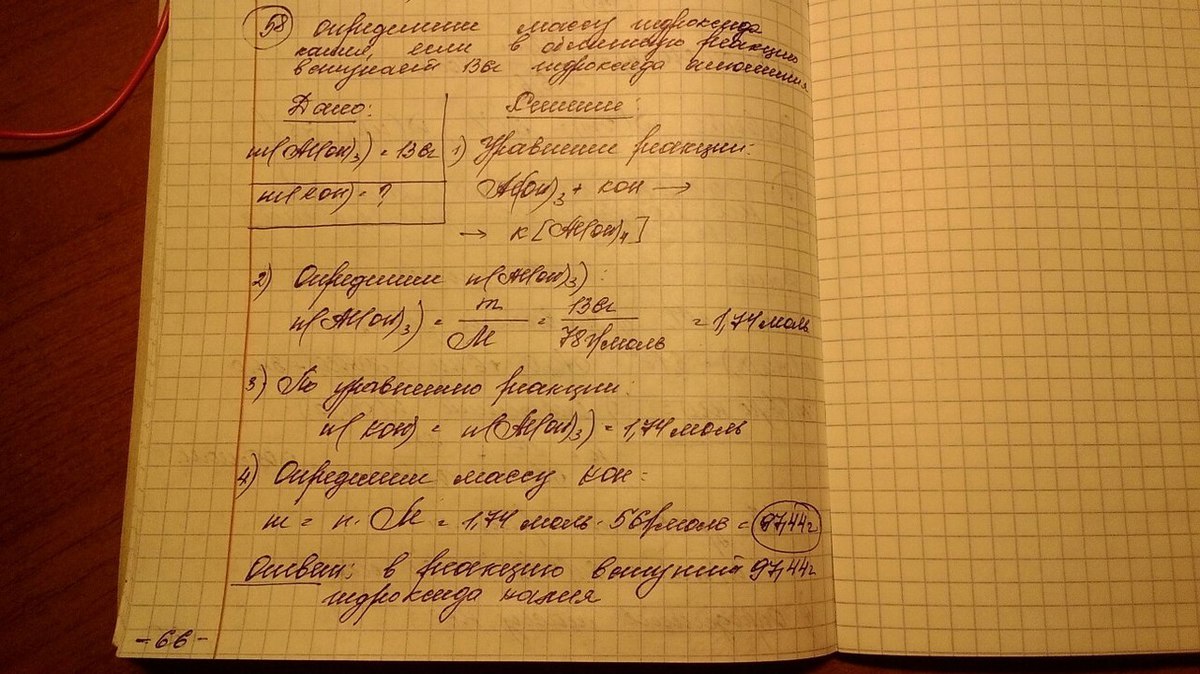 58 Определить массу гидроксида
калия, если в обменную реакцию
вступает 136г гидроксида алюминия.
Дано: Решение:
m(Al(OH)3) = 136г 1) Уравнение реакции:
m(KOH) = ? Al(OH)3 + KOH →
→ K[Al(OH)4]
2) Определим n(Al(OH)3):
n(Al(OH)3) = m/M = 136г/78г/моль = 1,74 моль
3) По уравнению реакции:
n(KOH) = n(Al(OH)3) = 1,74 моль
4) Определим массу KOH:
m = n · M = 1,74 моль · 56г/моль = 97,44г
Ответ: в реакцию вступит 97,44г
гидроксида калия
- 66 -